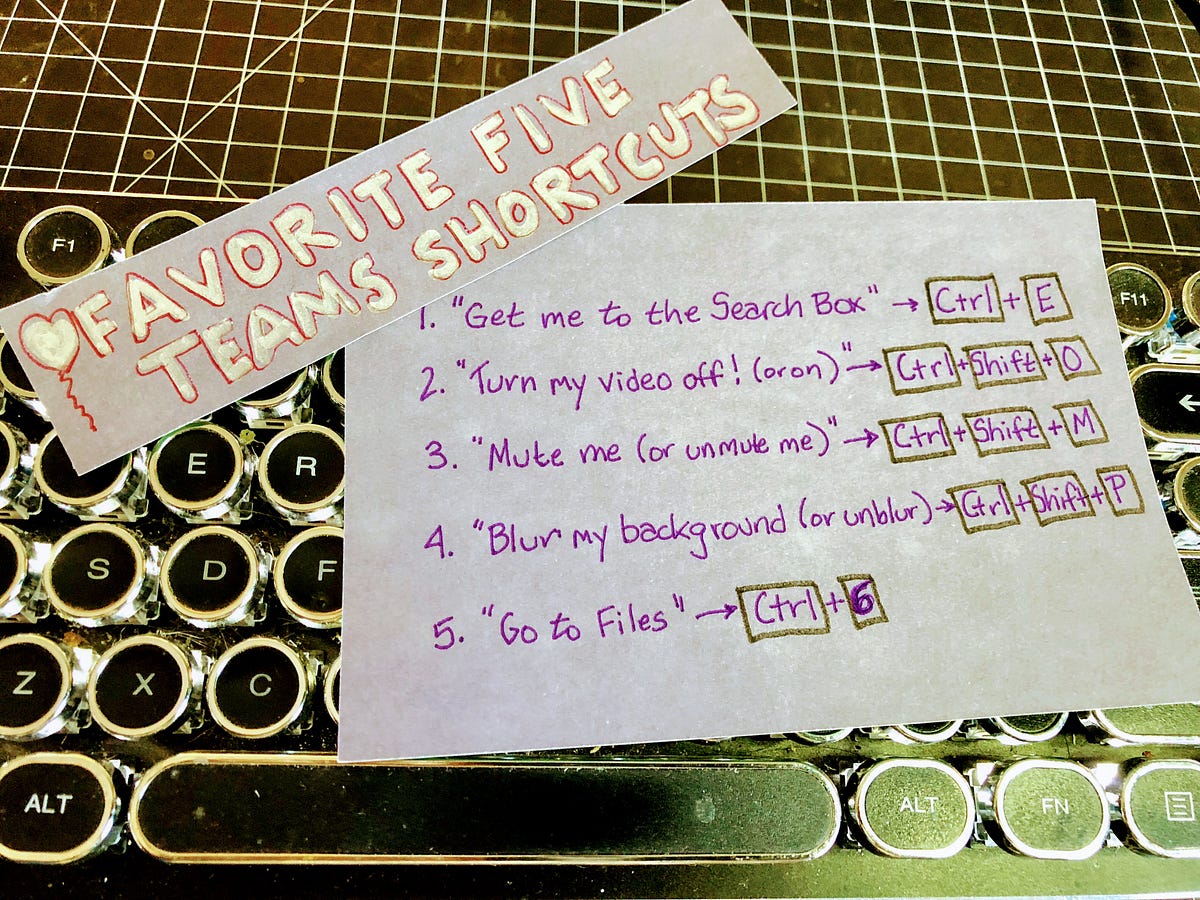 FAVORITE FIVE
TEAMS SHORTCUTS
1. "Get me to the Search Box" → Ctrl + E
2. "Turn my video off! (or on)" → Ctrl + Shift + O
3. "Mute me (or unmute me)" → Ctrl + Shift + M
4. "Blur my background (or unblur) → Ctrl + Shift + P
5. "Go to Files" → Ctrl + 6
F1
F11
←
E R
S D F
Z X C
ALT ALT FN